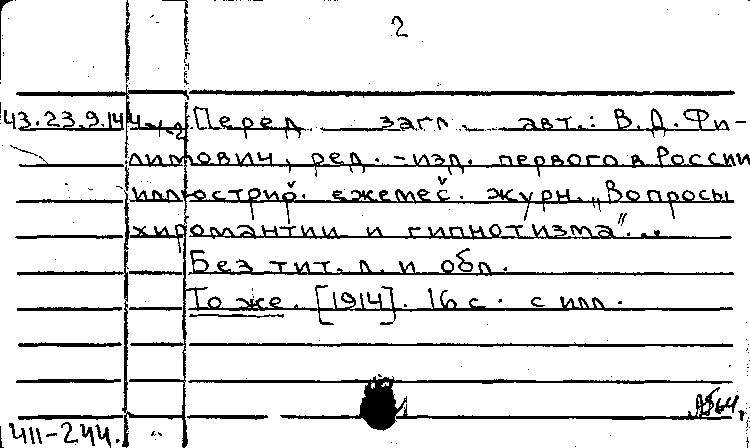 2
43.23.9.144 Перед загл. авт.: В.Д.Фи-
лимович, ред.-изд. первого в России
иллюстрир. ежемес. журн. „Вопросы
хиромантии и гипнотизма"...
Без тит. л. и обл.
То же. [1914]. 16 с. с илл.
411-244.